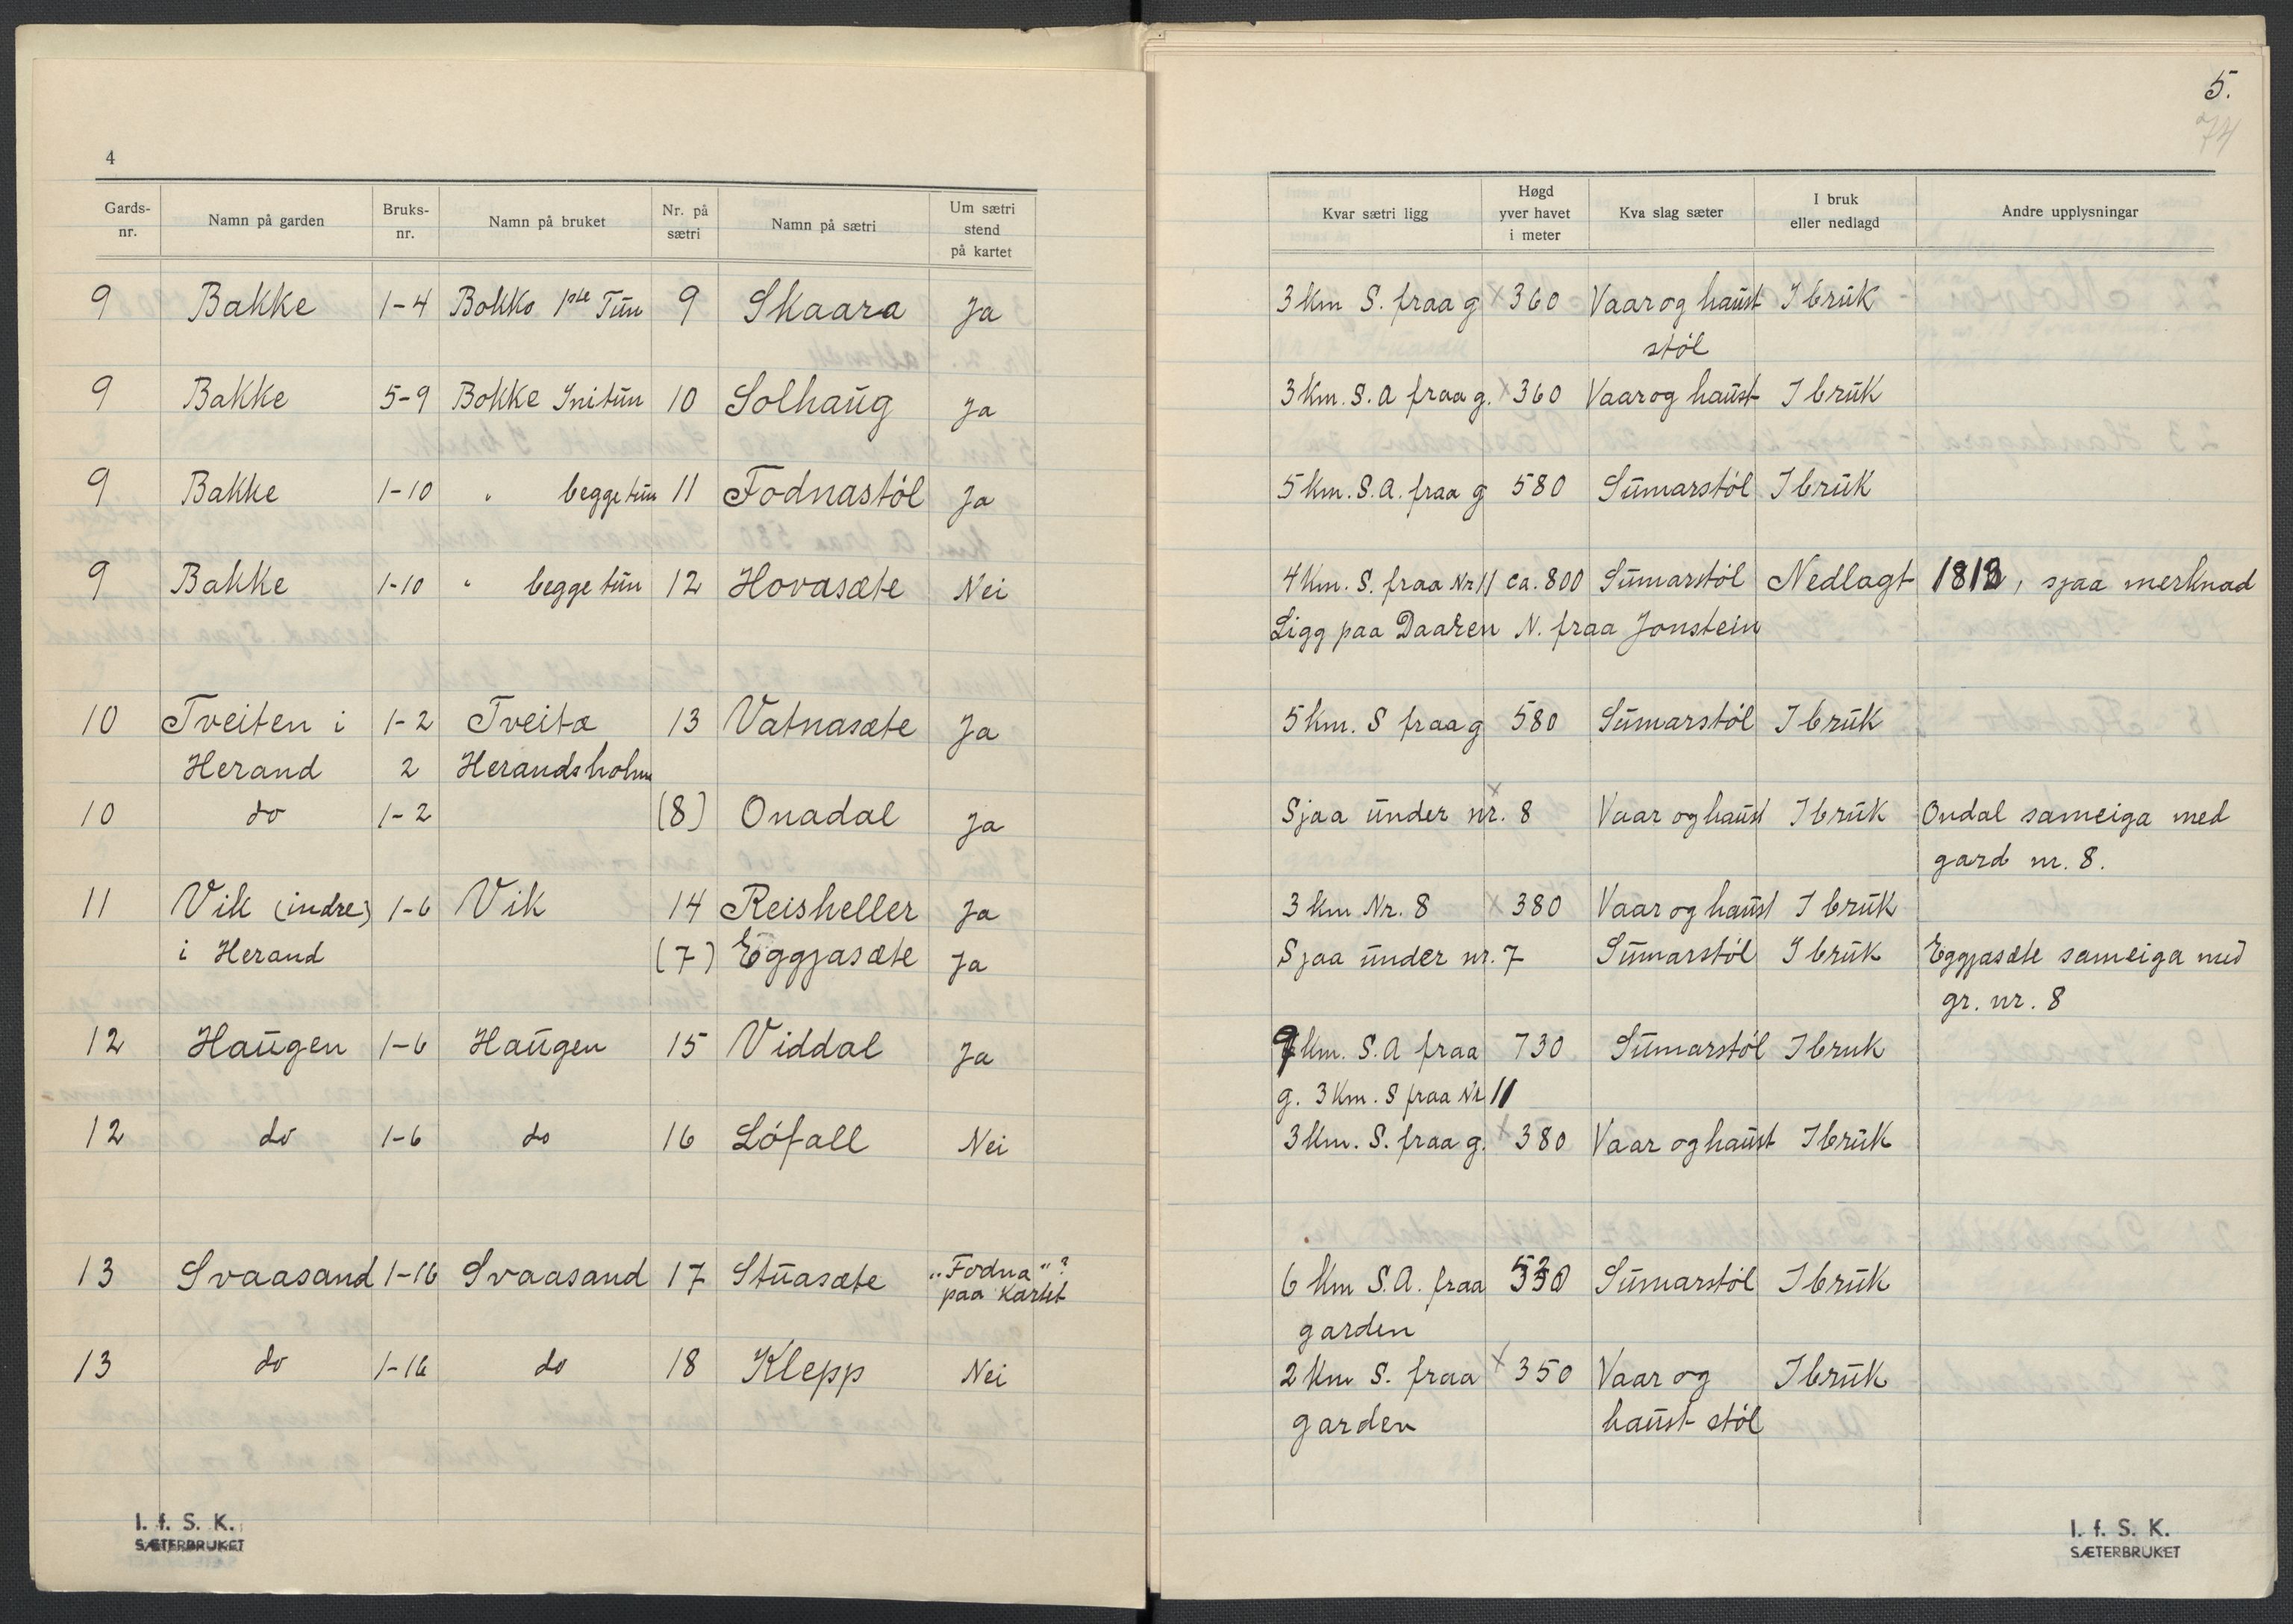 4
Gards-nr. Namn på garden Bruks-nr. Namn på bruket Nr. på sætri Namn på sætri Um sætri stend på kartet
9 Bakke 1-4 Bokko 1ste Tūn 9 Skaara Ja
9 Bakke 5-9 Bokke Initūn 10 Solhaūg Ja
9 Bakke 1-10 " begge tūn 11 Fodnastöl Ja
9 Bakke 1-10 " begge tūn 12 Hovasæte Nei
10 Tveiten i 1-2 Tveita 13 Vatnasæte Ja
Herand 2 Herandsholm
10 do 1-2 (8) Onadal Ja
11 Vik (indre) 1-6 Vik 14 Reisheller Ja
i Herand (7) Eggjasæte Ja
12 Haūgen 1-6 Haūgen 15 Viddal Ja
12 do 1-6 do 16 Löfall Nei
13 Svaasand 1-16 Svaasand 17 Stūasæte "Fodna"?
paa Kartet
13 do 1-16 do 18 Klepp Nei
I. f. S. K.
SÆTERBRUKET
5.
74
Kvar sætri ligg Høgd yver havet i meter Kva slag sæter I bruk eller nedlagd Andre upplysningar
3 km S. fraa g x 360 Vaar og haūst I brūk
stöl
3 km. S. A fraa g. x 360 Vaar og haūst I brūk
5 km. S. A. fraa g 580 Sūmarstöl I brūk
4 Km. S. fraa Nr 11 ca. 800 Sūmarstöl Nedlagt 1813, sjaa merknad
Ligg paa Daaren N. fraa Jonstein
5 km. S fraa g 580 Sūmarstöl I brūk
Sjaa ūnder nr. 8 x Vaar og haūst I brūk Ondal sameiga med
gard nr. 8.
3 km Nr. 8 x 380 Vaar og haūst I brūk
Sjaa ūnder nr. 7 Sūmarstöl I brūk Eggjasæte sameiga med
gr. nr. 8
9 km. S. A fraa 730 Sūmarstöl I bruk
g. 3 Km. S fraa Nr 11
3 Km. S. fraa g. x 380 Vaar og haūst I brūk
6 Km S. A. fraa Sūmarstöl I brūk
garden
2 Km S. fraa x 350 Vaar og I brūk
garden haūst stöl
I. f. S. K.
SÆTERBRUKET